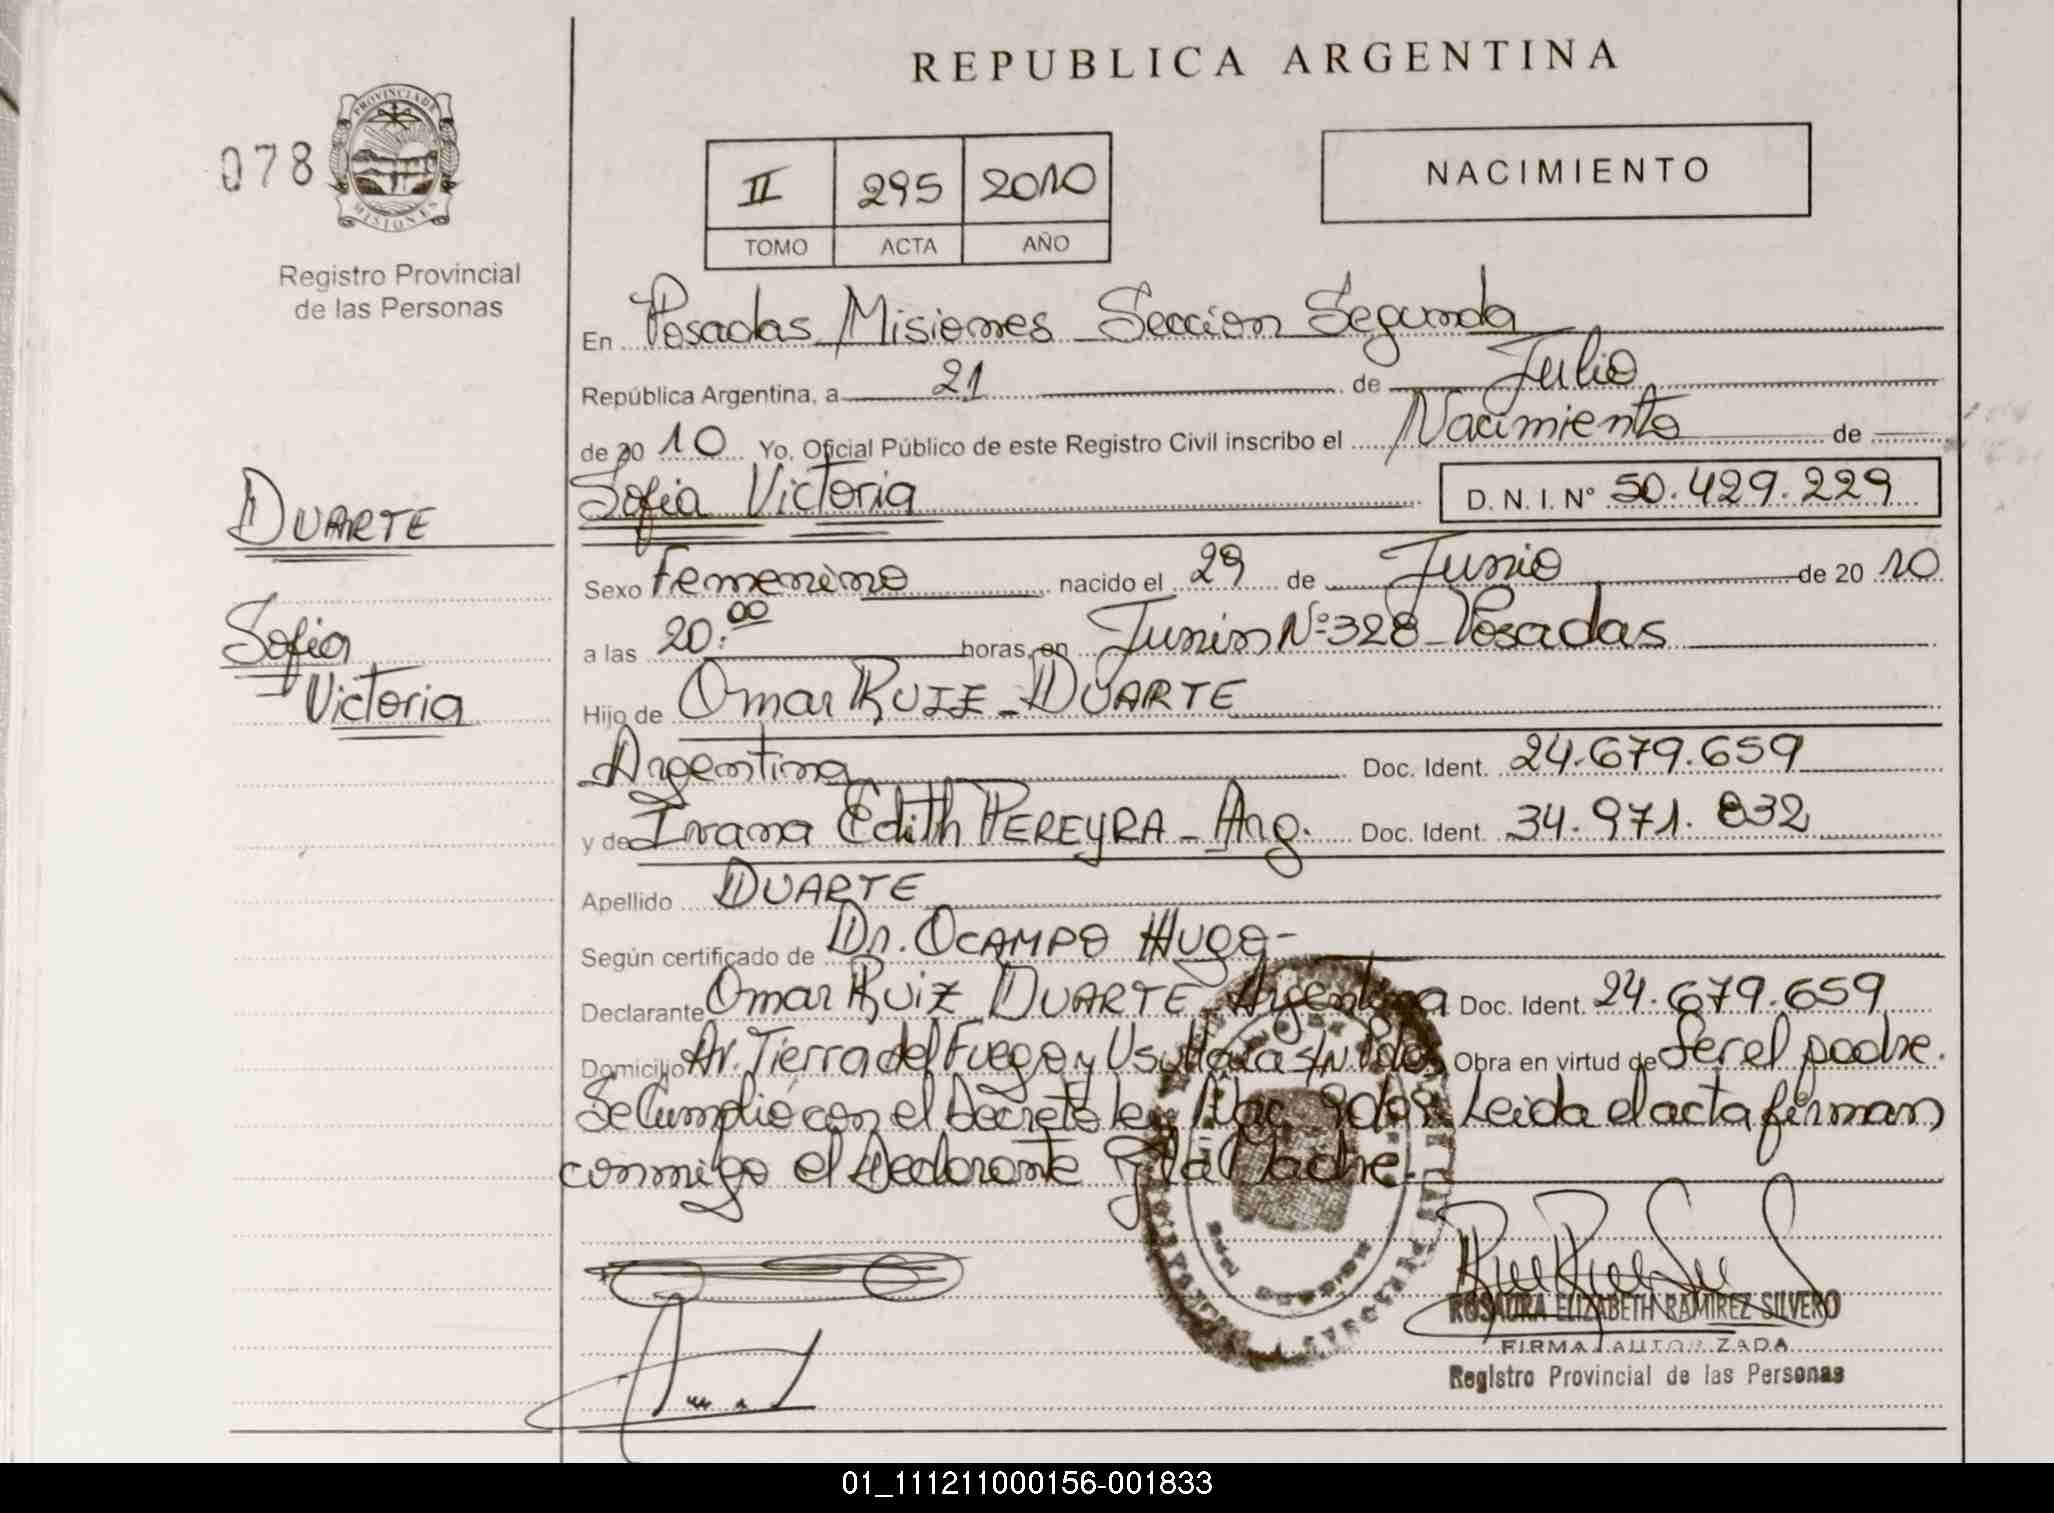 REPUBLICA ARGENTINA
078
PROVINCIA DE
MISIONES
Registro Provincial
de las Personas
II 295 2010
TOMO ACTA AÑO
NACIMIENTO
En Posadas Misiones Seccion Segunda
República Argentina, a 21 de Julio
de 2010 Yo, Oficial Público de este Registro Civil inscribo el Nacimiento de
DUARTE
Sofia Victoria D. N. I. N° 50.429.229
Sexo Femenino nacido el 29 de Junio de 2010
Sofia
a las 20:00 horas, en Junin Nº 328 Posadas
Victoria
Hijo de Omar RUIZ - DUARTE
Argentina Doc. Ident. 24.679.659
y de Ivana Edith PEREYRA - Arg. Doc. Ident. 34.971.832
Apellido DUARTE
Según certificado de Dr. OCAMPO Hugo -
Declarante Omar Ruiz DUARTE Argentina Doc. Ident. 24.679.659
Domicilio Av. Tierra del Fuego y Usuhaia s/n. Pdas Obra en virtud de Ser el padre.
Se Cumplió con el Decreto ley Nac. Leida el acta firman
conmigo el Declarante y la Madre.
ROSAURA ELIZABETH RAMIREZ SILVERO
FIRMA AUTORIZADA
Registro Provincial de las Personas
01_111211000156-001833